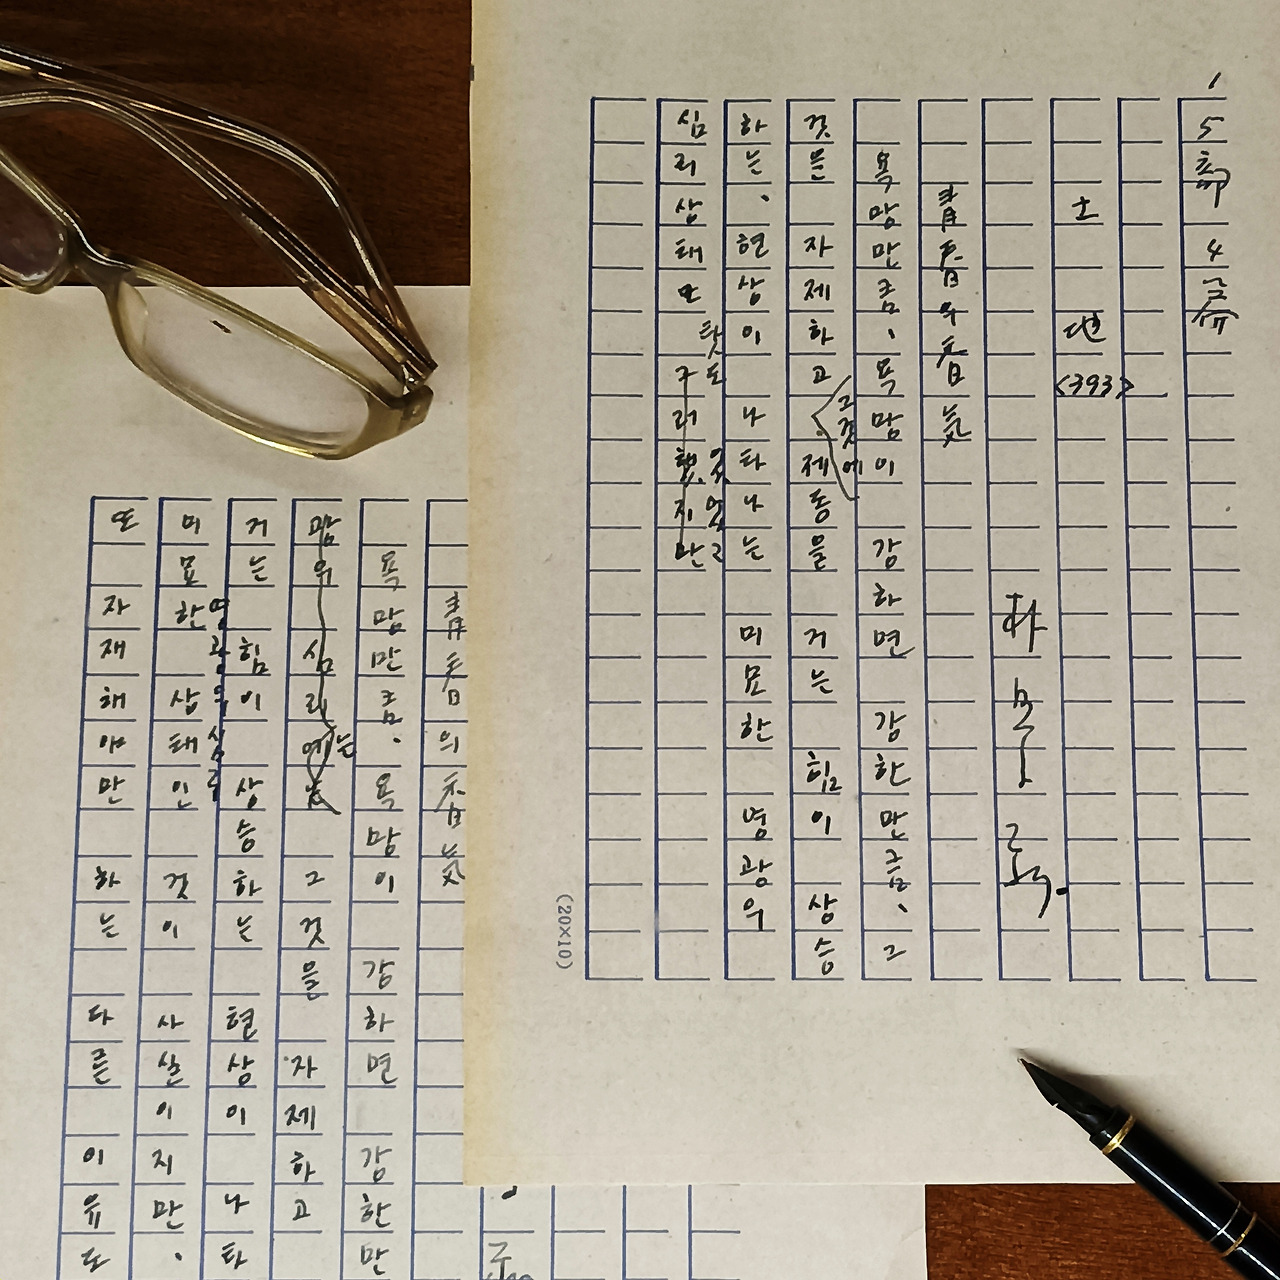 1
5部 4篇
土地 <393>
朴景利
青春의香氣
욕망만큼、욕망이 강하면 강한만큼、그
것을 자제하고 그것에 제동을 거는 힘이 상승
하는、현상이 나타나는 미묘한 명광의
심리상태또 그러했지만
탓도 있었고
(20×10)
青春의香氣
욕망만큼、욕망이 강하면 강한만
망의 심리에는 그것을 자제하고
거는 힘이 상승하는 현상이 나타
명광의 심리
미묘한 상태인 것이 사실이지만、
또 자재해야만 하는 다른 이유도